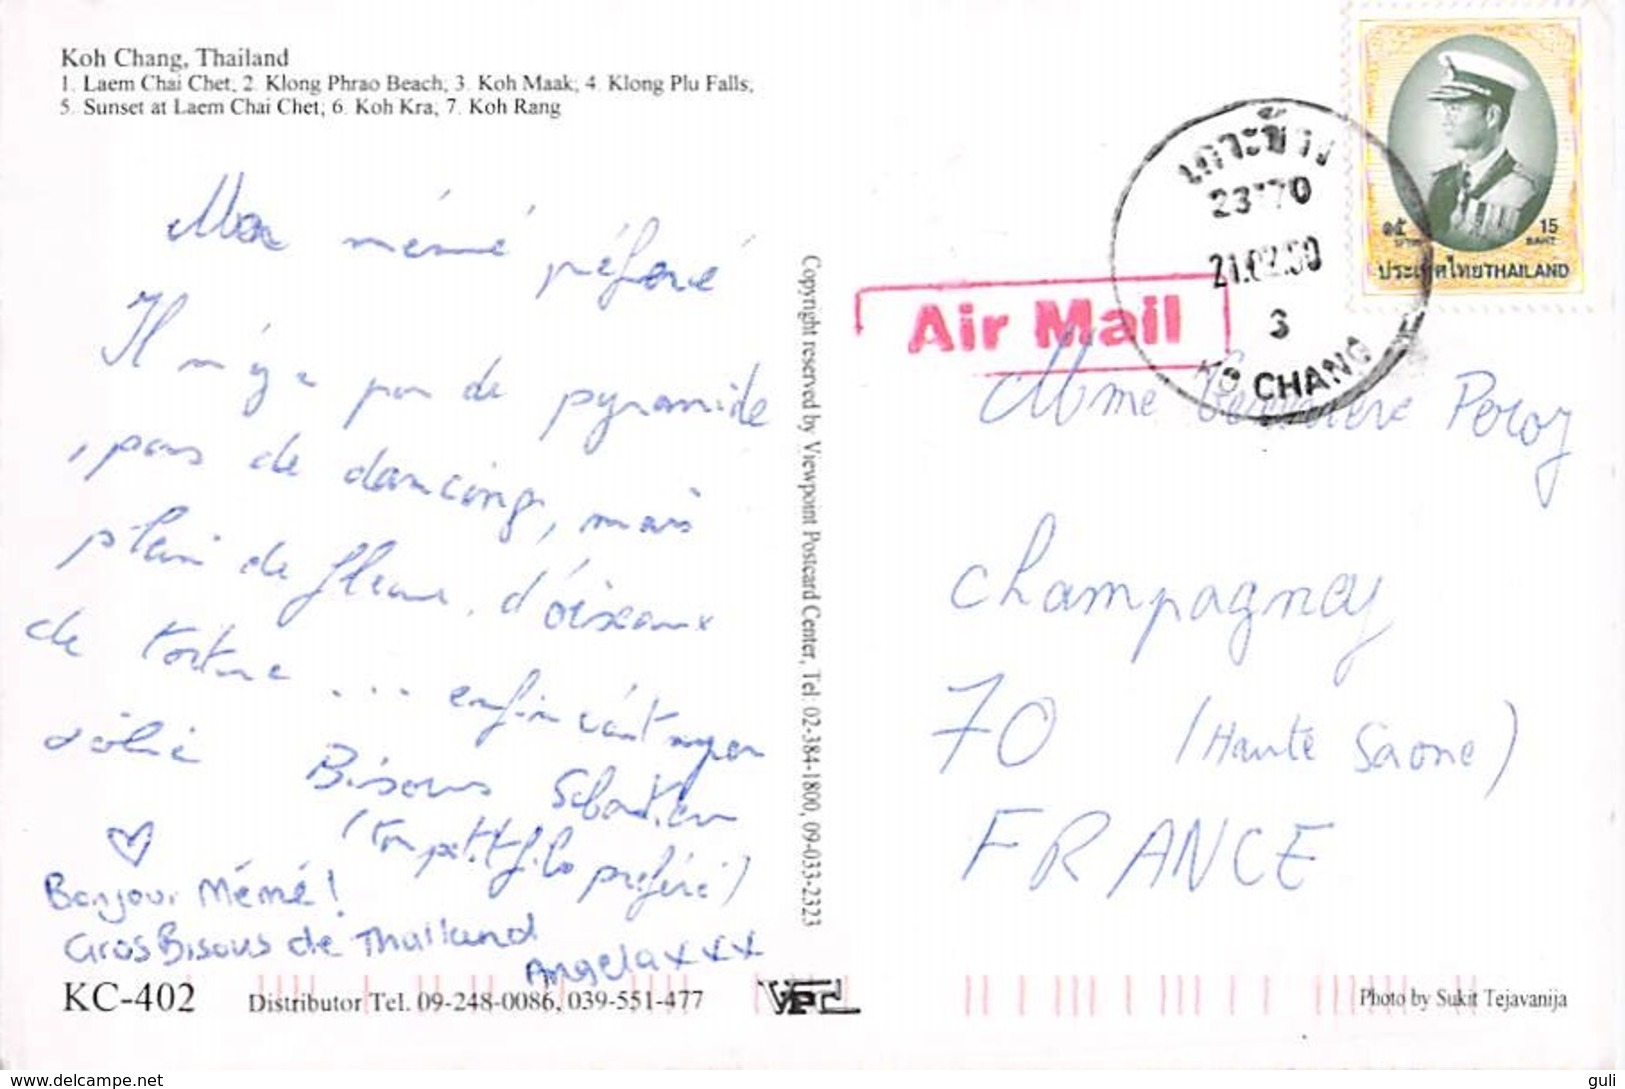 Koh Chang, Thailand
1. Laem Chai Chet; 2. Klong Phrao Beach; 3. Koh Maak; 4. Klong Plu Falls;
5. Sunset at Laem Chai Chet; 6. Koh Kra; 7. Koh Rang
Ma mémé préféré
Il n'y a pas de pyramide
, pas de dancing, mais
plein de fleurs, d'oiseaux
de tortue ... enfin
Bisous Sébastien
(ton petit fils préféré)
Bonjour Mémé!
Gros Bisous de Thailand
Angela xxx
KC-402
Distributor Tel. 09-248-0086, 039-551-477
VPC
Copyright reserved by Viewpoint Postcard Center, Tel: 02-384-1800, 09-033-2323
เกาะช้าง
21.02.50
3
KO CHANG
๑๕ บาท
15 BAHT
ประเทศไทย THAILAND
Air Mail
Mme Geneviève Peroy
Champagney
70 (Haute Saone)
FRANCE
Photo by Sukit Tejavanija
www.delcampe.net
guli